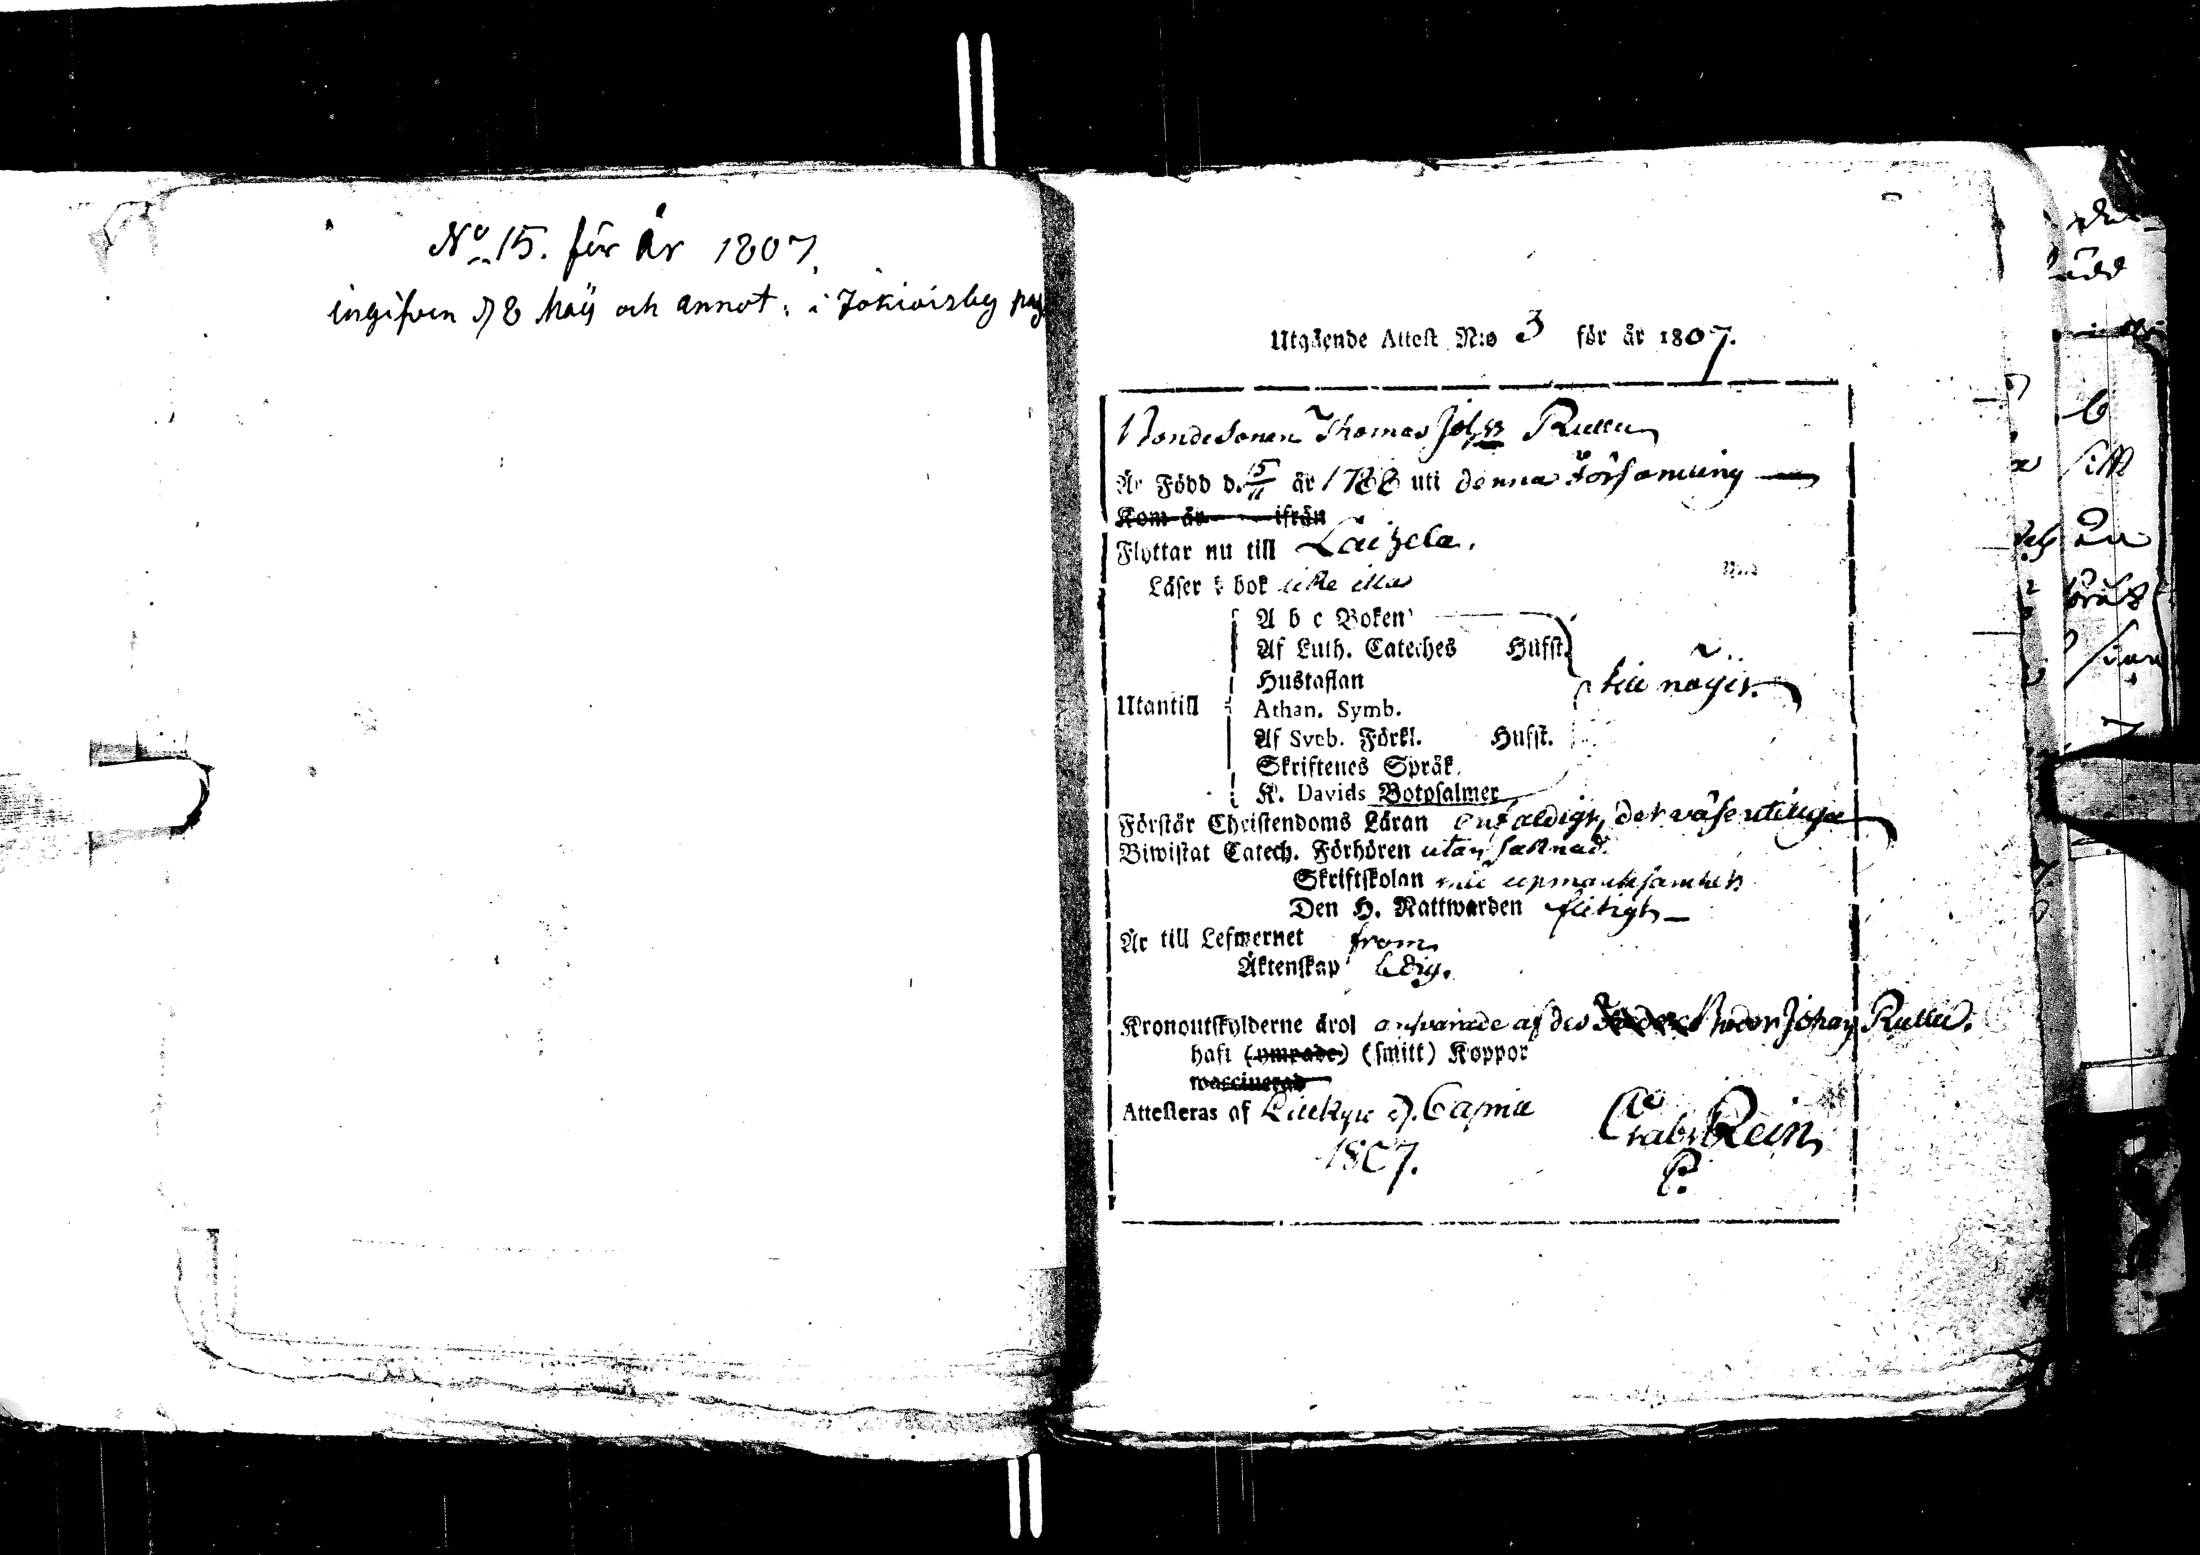 No 15. för år 1807
ingifven d 8 Maij och annot: i Jokioisby pag
Utgående Attest N:o 3 för år 1807.
Bondesonen Thomas Johss Rullu
Är Född d. 15/11 år 1788 uti denna Församling
Kom år ifrån
Flyttar nu till Laihela.
Läser i bok icke illa
A b c Boken
Af Luth. Cateches Hufst.
Hustaflan
till nöjes.
Utantill
Athan. Symb.
Af Sveb. Förkl. Hufst.
Skriftenes Språk
K. Davids Botpsalmer
Förstår Christendoms Läran enfaldigt, det väsentliga
Biwistat Catech. Förhören utan saknad.
Skriftskolan med upmärksamhet
Den H. Nattwarden flitigt
Är till Lefwernet from
Äktenskap ledig.
Kronoutskylderne äro ansvarade af des Broder Johan Rullu.
haft (ympade) (smitt) Koppor
waccinerad
Attesteras af d. 6 April
1807.
Gabr Rein
P.